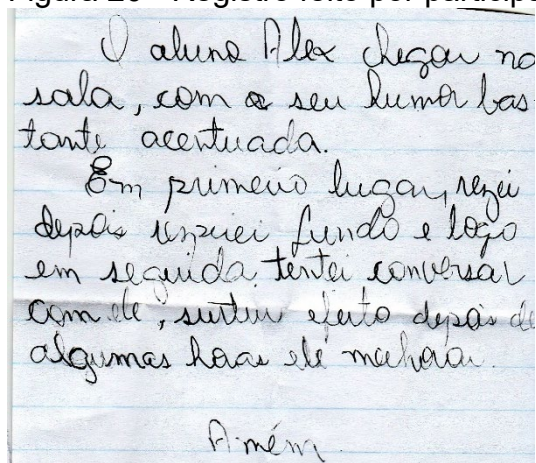 O aluno Alex chegou na
sala, com o seu humor bas-
tante acentuada.
Em primeiro lugar, rezei
depois respirei fundo e logo
em seguida tentei conversar
com ele, surtiu efeito depois de
algumas horas ele melhorou.
Amém